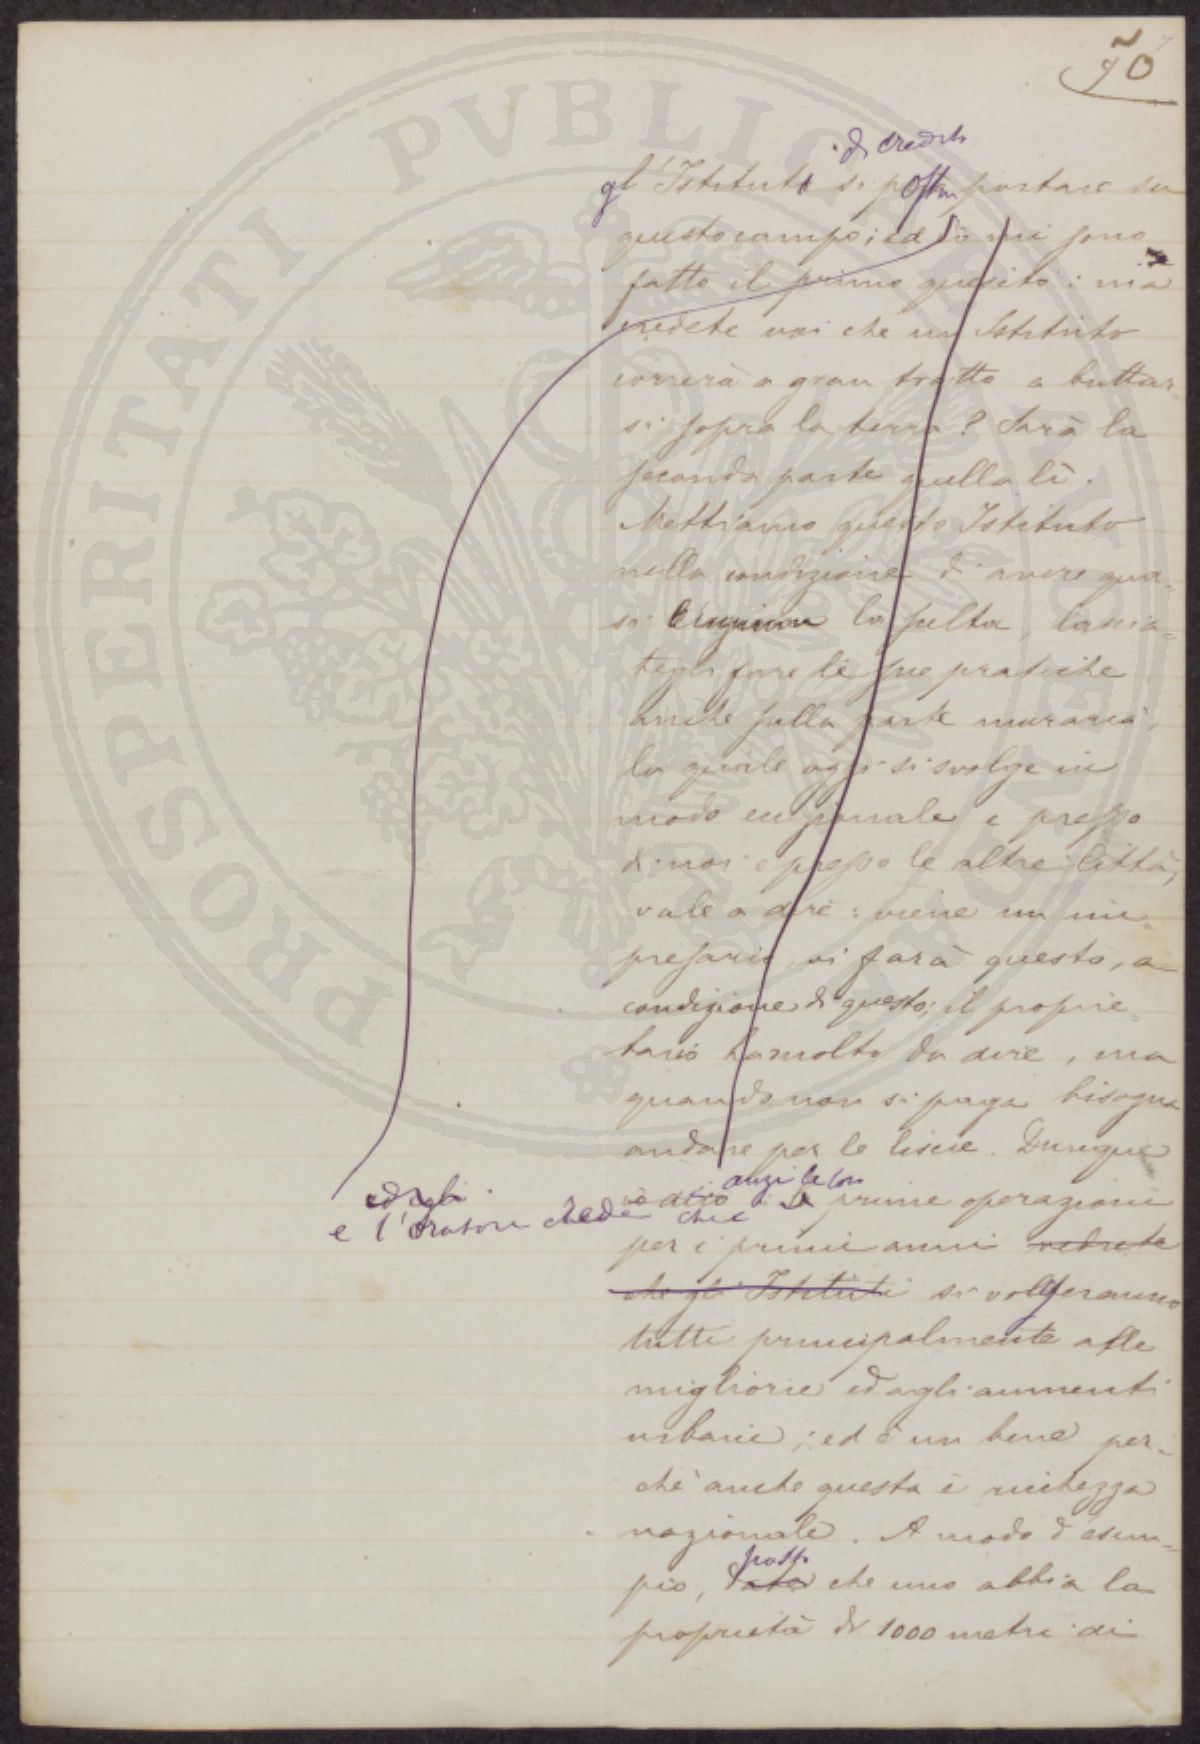 70
di credito
gl'Istituti si possan portare su
questo campo; ed io mi sono
fatto il primo quesito: ma
credete voi che un Istituto
correrà a gran tratto a buttar-
si sopra la terra? Sarà la
seconda parte quella lì.
Mettiamo questo Istituto
nella condizione di avere qua-
si la scelta, lascia-
tegli fare le sue pratiche
anche sulla parte muraria,
la quale oggi si svolge in
modo eugionale e presso
di noi e presso le altre città,
vale a dire: viene un im-
presario vi farà questo, a
condizione di questo; il proprie-
tario ha molto da dire, ma
quando non si paga bisogna
andare per le liscie. Dunque
ed egli
e l'oratore chiede che anzi le loro
io dico le prime operazioni
per i primi anni vedrete
che gli Istituti si volgeranno
tutti principalmente alle
migliorie ed agli aumenti
urbani; ed è un bene per-
chè anche questa è ricchezza
nazionale. A modo d'esem-
posto
pio, dato che uno abbia la
proprietà di 1000 metri di
PROSPERITATI PVBLICAE